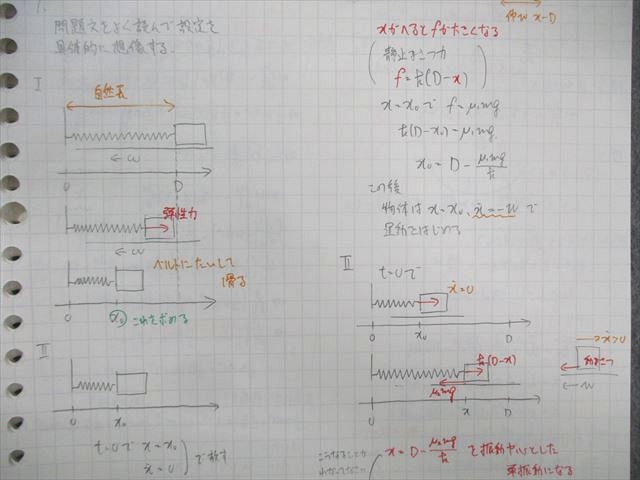 1.
問題文をよく読んで設定を
具体的に想像する.
I
自然長
← w
0
D
弾性力
← w
ベルトにたいして
滑る
0
x₀
これを求める
II
0
x₀
t=0で x=x₀
ẋ=0
で放す
x-D
xがへるとfが大きくなる
静止まさつ力
f=k(D-x)
x=x₀で f=μ₁mg
k(D-x₀)=μ₁mg
x₀=D-μ₁mg/k
この後
物体は x=x₀, ẋ=-w で
運動をはじめる
II
t=0で
ẋ=0
0
x₀
D
k(D-x)
μ₂mg
0
x
D
→ẋ>0
動まさつ
← w
こうなることが
わかってなくて
x=D-μ₂mg/k を振動中心とした
単振動になる